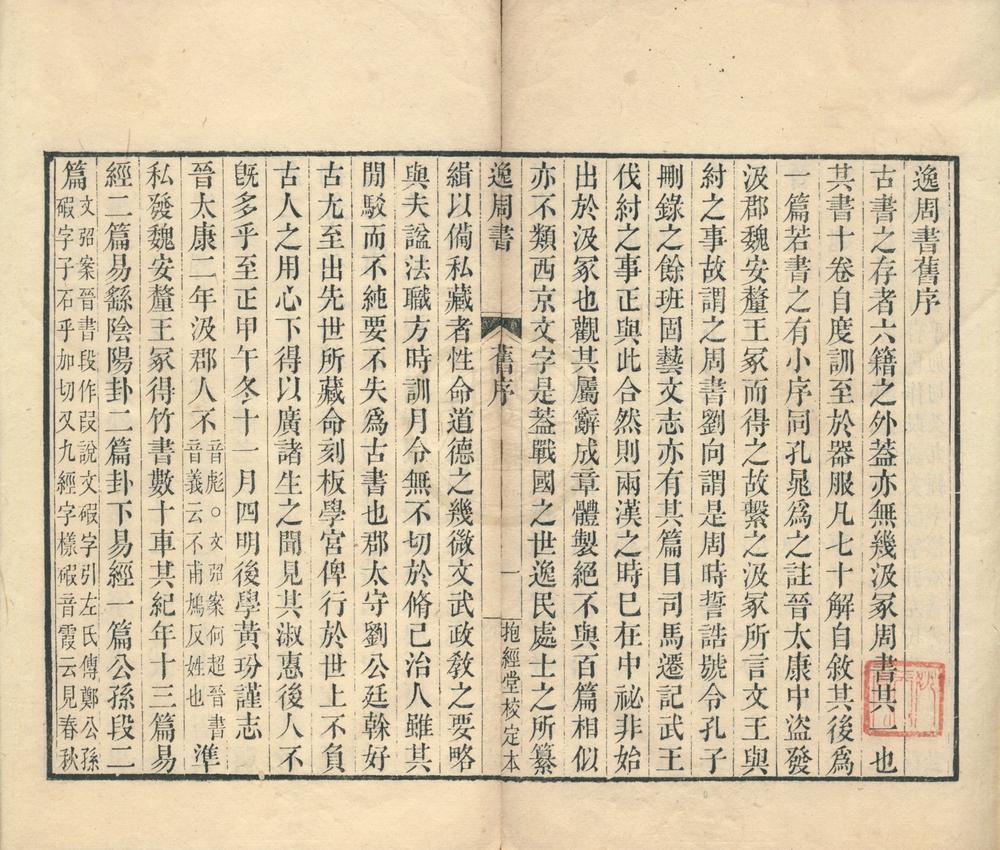 逸周書舊序
古書之存者六籍之外葢亦無幾汲冢周書其一也
其書十卷自度訓至於器服凡七十解自敘其後爲
一篇若書之有小序同孔晁爲之註晉太康中盜發
汲郡魏安釐王冢而得之故繫之汲冢所言文王與
紂之事故謂之周書劉向謂是周時誓誥號令孔子
刪錄之餘班固藝文志亦有其篇目司馬遷記武王
伐紂之事正與此合然則兩漢之時已在中祕非始
出於汲冢也觀其屬辭成章體製絕不與百篇相似
亦不類西京文字是葢戰國之世逸民處士之所纂
逸周書 舊序 一 抱經堂校定本
緝以備私藏者性命道德之幾微文武政敎之要略
與夫諡法職方時訓月令無不切於脩己治人雖其
閒駁而不純要不失爲古書也郡太守劉公廷榦好
古尤至出先世所藏命刻板學宮俾行於世上不負
古人之用心下得以廣諸生之聞見其淑惠後人不
旣多乎至正甲午冬十一月四明後學黃玠謹志
晉太康二年汲郡人不音彪○文弨案何超晉書音義云不甫鳩反姓也準
私發魏安釐王冢得竹書數十車其紀年十三篇易
經二篇易繇陰陽卦二篇卦下易經一篇公孫段二
篇文弨案晉書段作叚說文碬字引左氏傳鄭公孫碬字子石乎加切又九經字樣碬音霞云見春秋